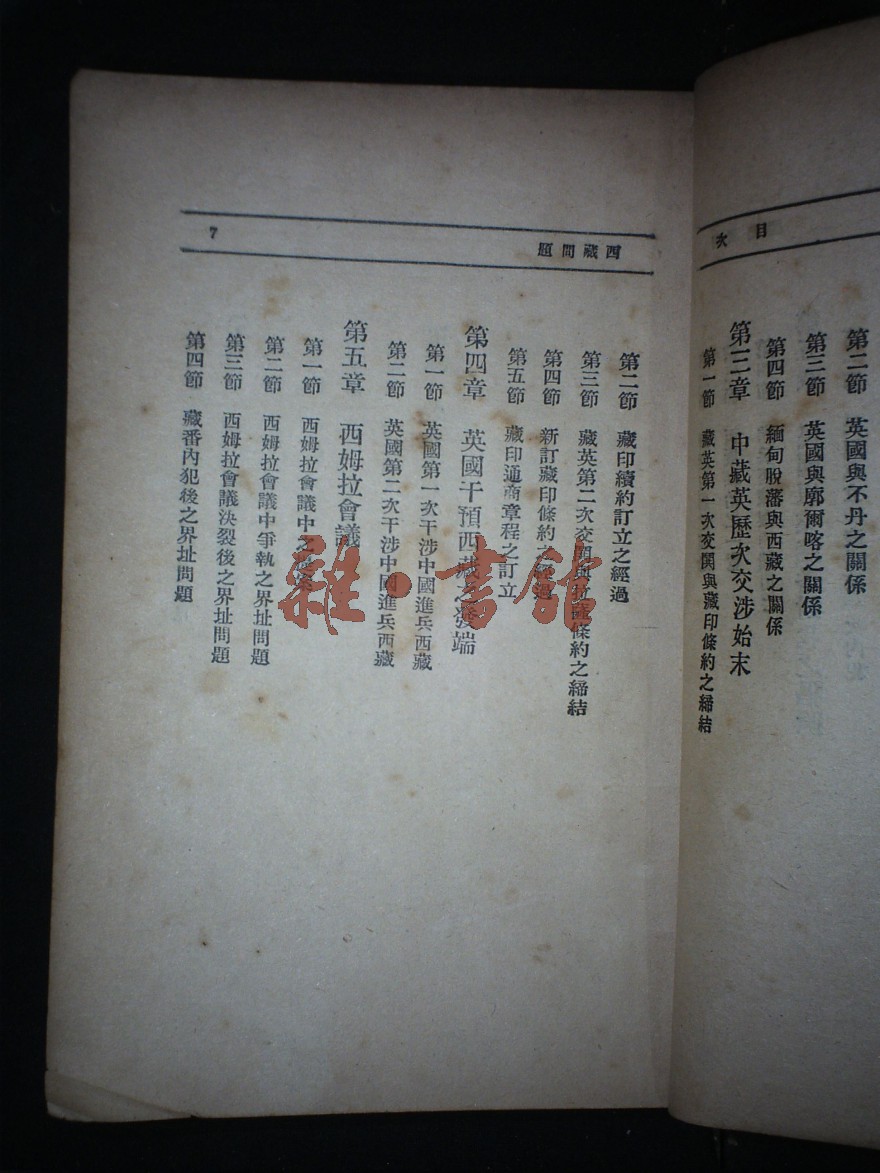 目次
第二節 英國與不丹之關係
第三節 英國與廓爾喀之關係
第四節 緬甸脫藩與西藏之關係
第三章 中藏英歷次交涉始末
第一節 藏英第一次交鬨與藏印條約之締結
西藏問題
7
第二節 藏印續約訂立之經過
第三節 藏英第二次交鬨與拉薩條約之締結
第四節 新訂藏印條約之經過
第五節 藏印通商章程之訂立
第四章 英國干預西藏之發端
第一節 英國第一次干涉中國進兵西藏
第二節 英國第二次干涉中國進兵西藏
第五章 西姆拉會議
第一節 西姆拉會議中之
第二節 西姆拉會議中爭執之界址問題
第三節 西姆拉會議決裂後之界址問題
第四節 藏番內犯後之界址問題
雜·書館